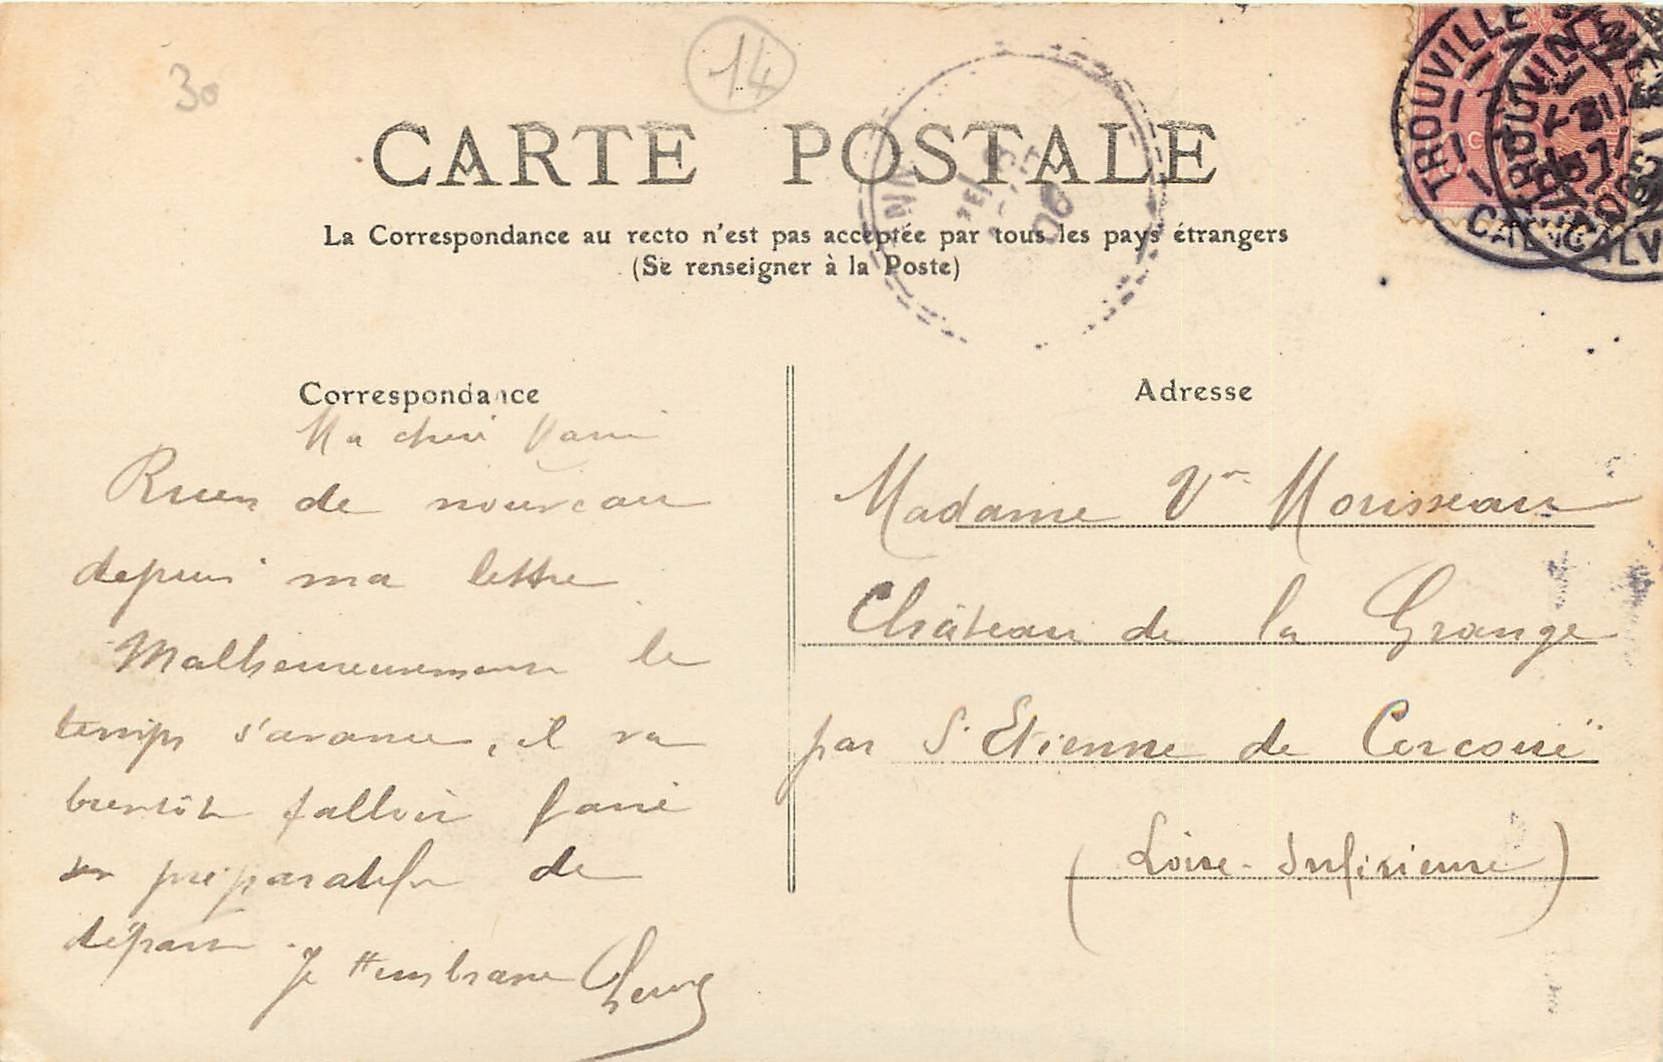 30
14
CARTE POSTALE
La Correspondance au recto n'est pas acceptée par tous les pays étrangers
(Se renseigner à la Poste)
TROUVILLE
CALV
Correspondance
Ma chère
Rien de nouveau
depuis ma lettre
Malheureusement le
temps s'avance, il va
bientôt falloir faire
préparatifs de
départ. Je t'embrasse
Adresse
Madame Vve Mousseau
Château de la Grange
par St Etienne de Corcouë
(Loire-Inférieure)